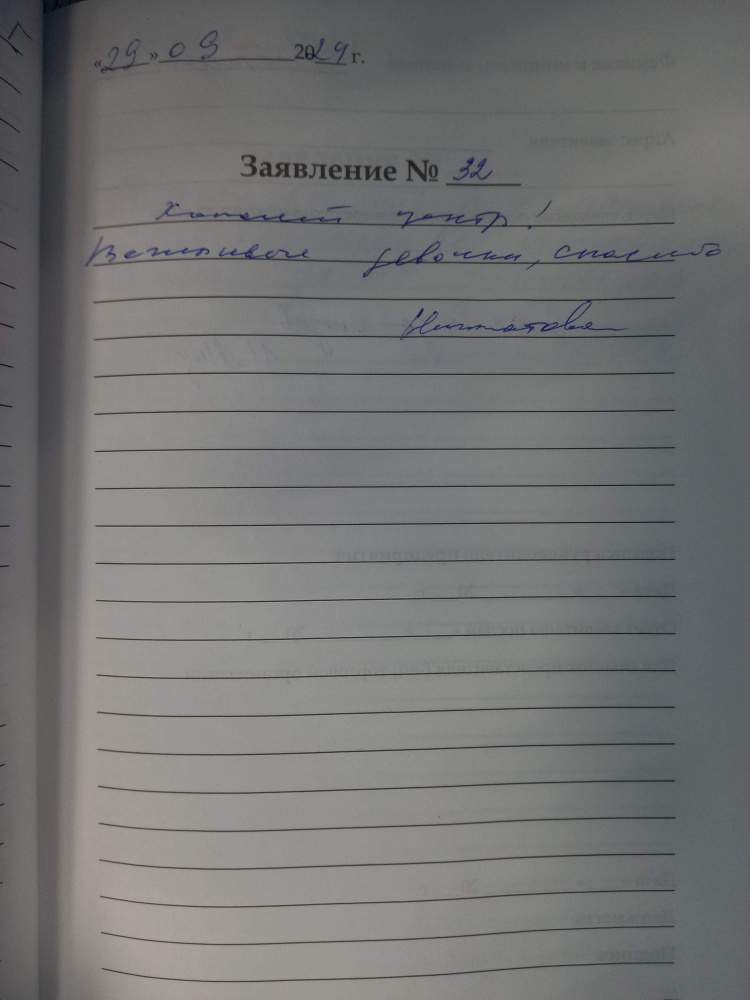 «29» 09 2024 г.
Заявление № 32
Хороший центр!
Вежливые девочки, спасибо